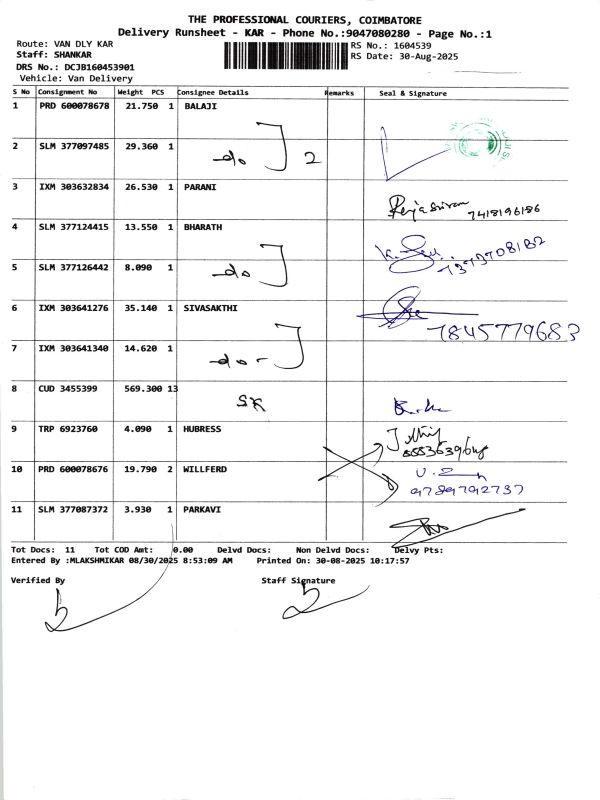 THE PROFESSIONAL COURIERS, COIMBATORE
Delivery Runsheet - KAR - Phone No.:9047080280 - Page No.:1
Route: VAN DLY KAR
RS No.: 1604539
Staff: SHANKAR
RS Date: 30-Aug-2025
DRS No.: DCJB160453901
Vehicle: Van Delivery
S No Consignment No Weight PCS Consignee Details Remarks Seal & Signature
1 PRD 600078678 21.750 1 BALAJI
2 SLM 377097485 29.360 1 -do 2
3 IXM 303632834 26.530 1 PARANI
7418196186
4 SLM 377124415 13.550 1 BHARATH
7373708182
5 SLM 377126442 8.090 1 -do
6 IXM 303641276 35.140 1 SIVASAKTHI
7845779683
7 IXM 303641340 14.620 1 -do-
8 CUD 3455399 569.300 13 SK
9 TRP 6923760 4.090 1 HUBRESS
10 PRD 600078676 19.790 2 WILLFERD
9789792737
11 SLM 377087372 3.930 1 PARKAVI
Tot Docs: 11 Tot COD Amt: 0.00 Delvd Docs: Non Delvd Docs: Delvy Pts:
Entered By :MLAKSHMIKAR 08/30/2025 8:53:09 AM Printed On: 30-08-2025 10:17:57
Verified By Staff Signature